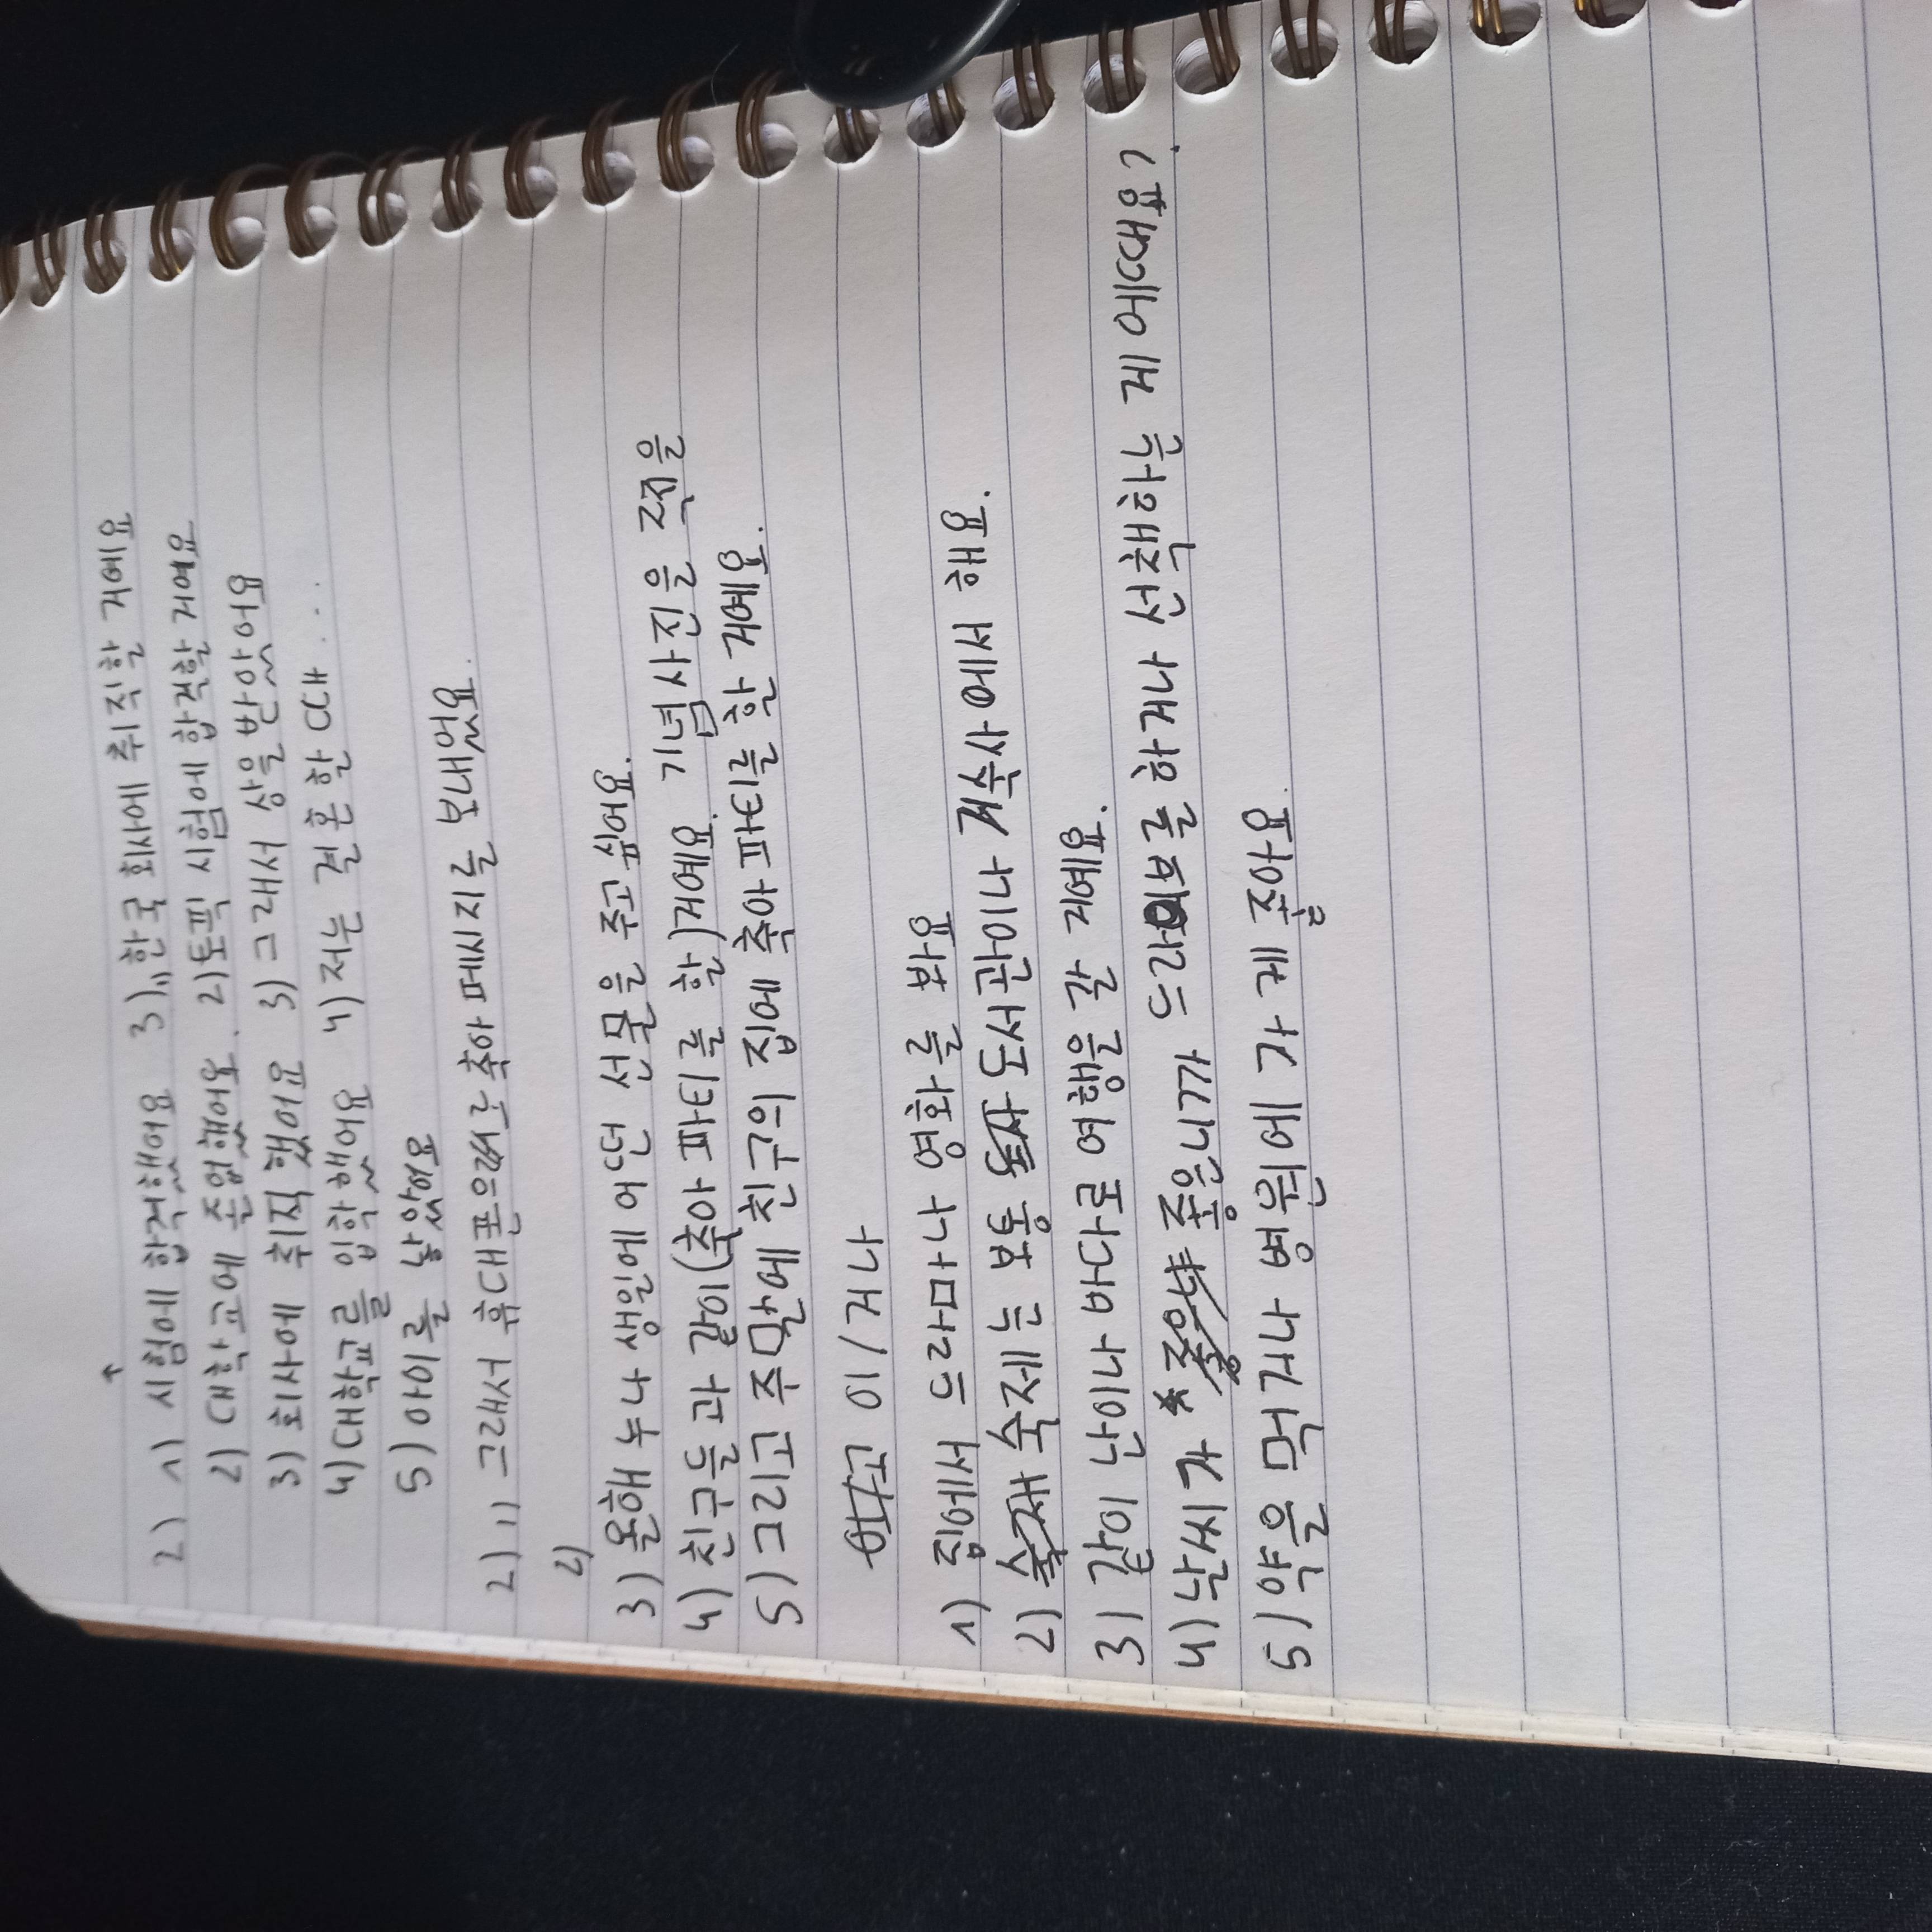 2) 1) 시험에 합격했어요 3) 한국 회사에 취직할 거예요
2) 대학교에 졸업했어요. 2) 토픽 시험에 합격할 거예요
3) 회사에 취직했어요 3) 그래서 상을 받았어요
4) 대학교를 입학했어요 4) 저는 결혼할 때...
5) 아이를 낳았어요
2) 1) 그래서 휴대폰으로 축아 메시지를 보내었요.
2)
3) 올해 누나 생일에 어떤 선물을 주고 싶어요.
4) 친구들과 같이 (축아 파티를 할) 거예요. 기념사진을 찍을
5) 그리고 주말에 친구의 집에 축아 파티를 할 거예요.
이/거나
1) 집에서 드라마나 영화를 봐요
2) 숙제는 보통 도서관이나 기숙사에서 해요.
3) 같이 산이나 바다로 여행을 갈 거예요.
4) 날씨가 좋으니까 드라이브를 하거나 산책하는 게 어때요?
5) 약을 먹거나 병원에 가 게 좋아요.